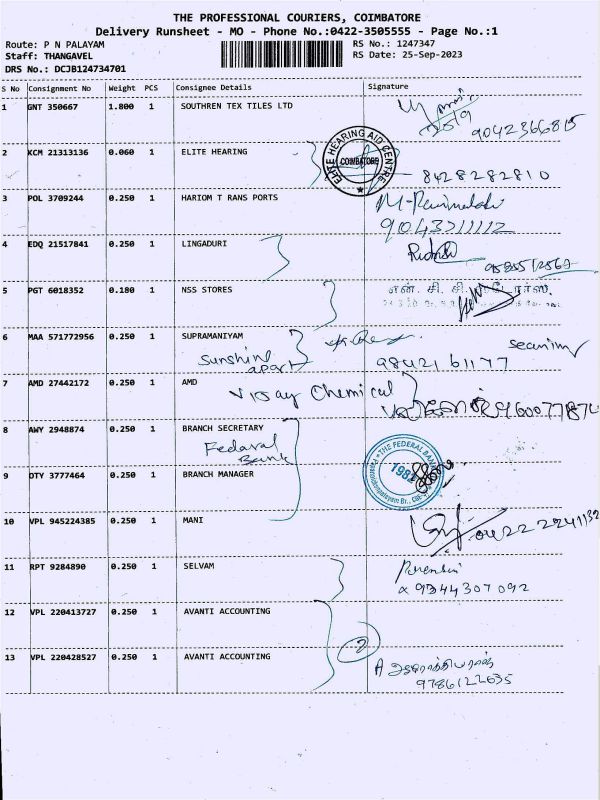 THE PROFESSIONAL COURIERS, COIMBATORE
Delivery Runsheet - MO - Phone No.:0422-3505555 - Page No.:1
Route: P N PALAYAM RS No.: 1247347
Staff: THANGAVEL RS Date: 25-Sep-2023
DRS No.: DCJB124734701
S No Consignment No Weight PCS Consignee Details Signature
1 GNT 350667 1.800 1 SOUTHREN TEX TILES LTD
25/9
9042366815
2 KCM 21313136 0.060 1 ELITE HEARING
ELITE HEARING AID CENTRE
COIMBATORE
8428282810
3 POL 3709244 0.250 1 HARIOM T RANS PORTS
9043211112
4 EDQ 21517841 0.250 1 LINGADURI
5 PGT 6018352 0.180 1 NSS STORES
என். சி. சி.
6 MAA 571772956 0.250 1 SUPRAMANIYAM
Sunshine
apart
9842161177
7 AMD 27442172 0.250 1 AMD
Vijay Chemical
8 AWY 2948874 0.250 1 BRANCH SECRETARY
Fedaral
Bank
THE FEDERAL BANK
1982
9 OTY 3777464 0.250 1 BRANCH MANAGER
10 VPL 945224385 0.250 1 MANI
0422 2241132
11 RPT 9284890 0.250 1 SELVAM
9344307092
12 VPL 220413727 0.250 1 AVANTI ACCOUNTING
2
13 VPL 220428527 0.250 1 AVANTI ACCOUNTING
9786122635